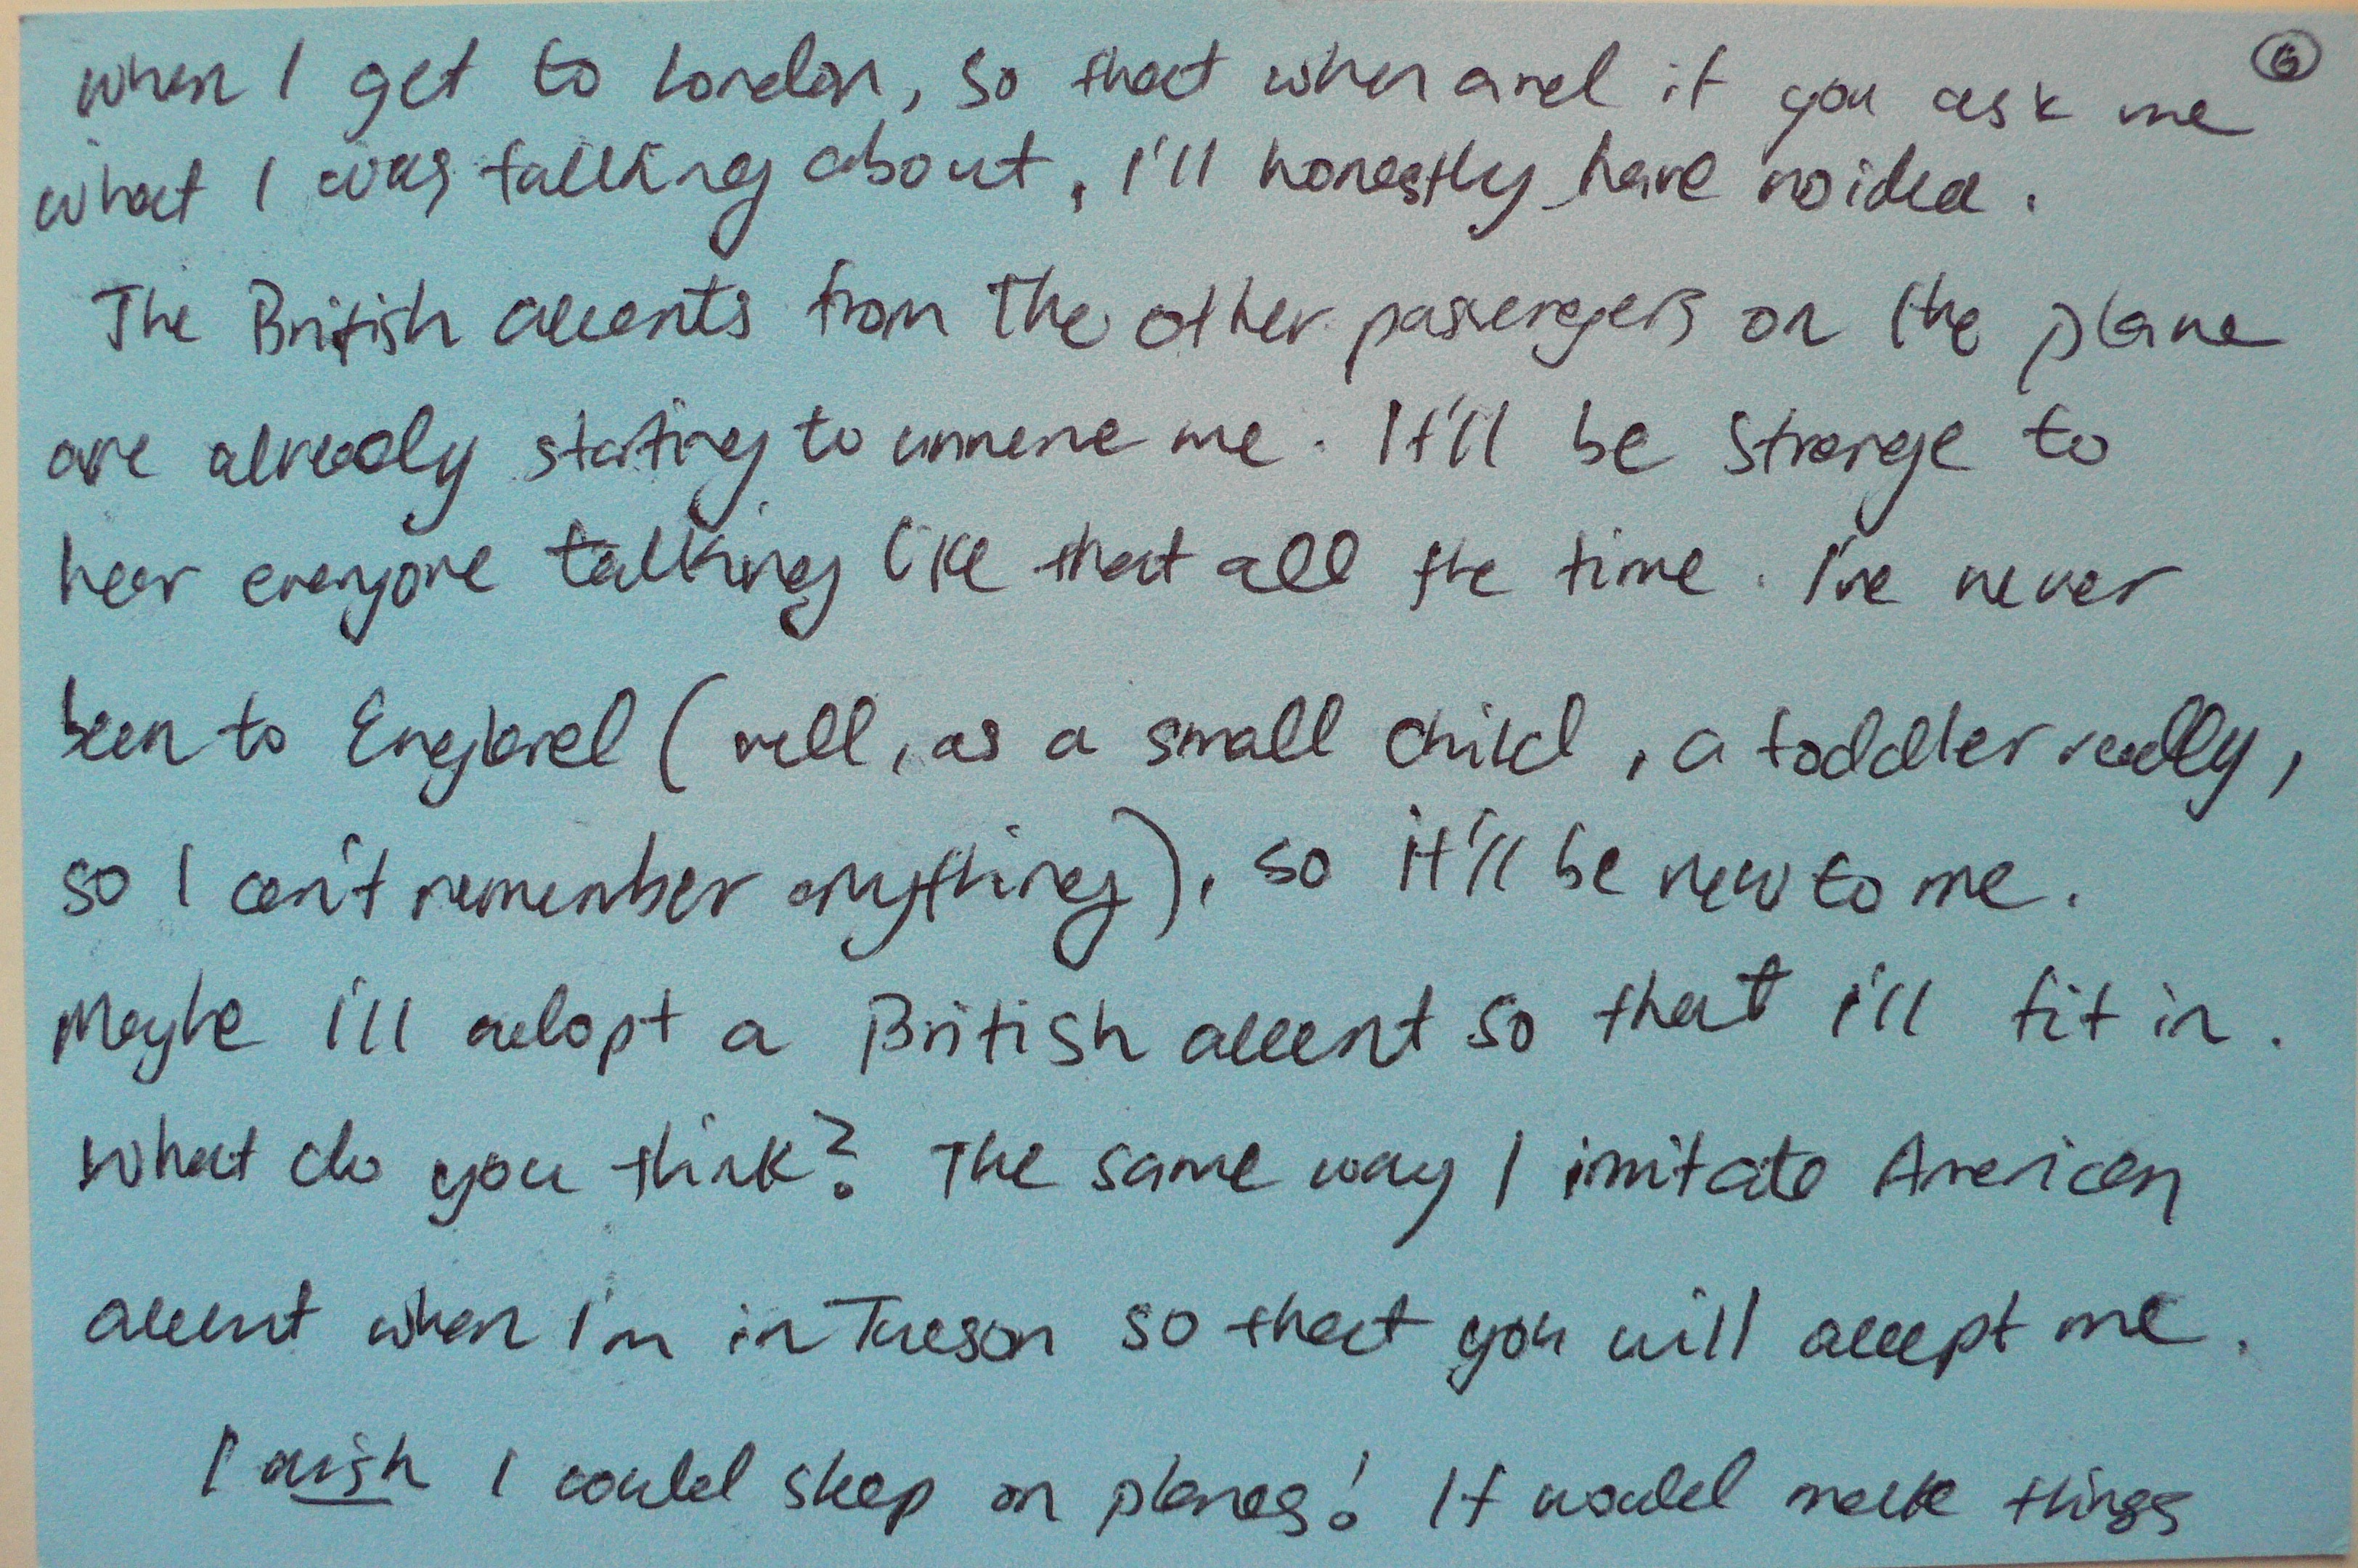 when I get to London, so that when and if you ask me ⑥
what I was talking about, I'll honestly have no idea.
The British accents from the other passengers on the plane
are already starting to unnerve me. It'll be strange to
hear everyone talking like that all the time. I've never
been to England (well, as a small child, a toddler really,
so I can't remember anything), so it'll be new to me.
Maybe i'll adopt a British accent so that i'll fit in.
What do you think? The same way I imitate American
accent when I'm in Tucson so that you will accept me.
I wish I could sleep on planes! It would make things